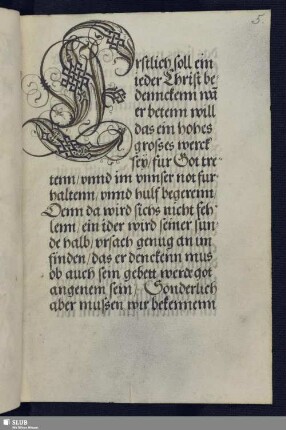 5.
Erstlich soll ein
ieder Christ be
denncken wañ
er betenn will
das ein hohes
grosses werck
sey / fur Got tre
tenn / vnnd im vnnser not fur
haltenn / vnnd hulf begerenn /
Denn da wird sichs nicht feh
lenn / ein ider wird seiner sun
de halb / vrsach genug an im
finden / das er denckenn mus
ob auch sein gebett werde got
angenem sein / Sonderlich
aber mussen wir bekennenn
SLUB